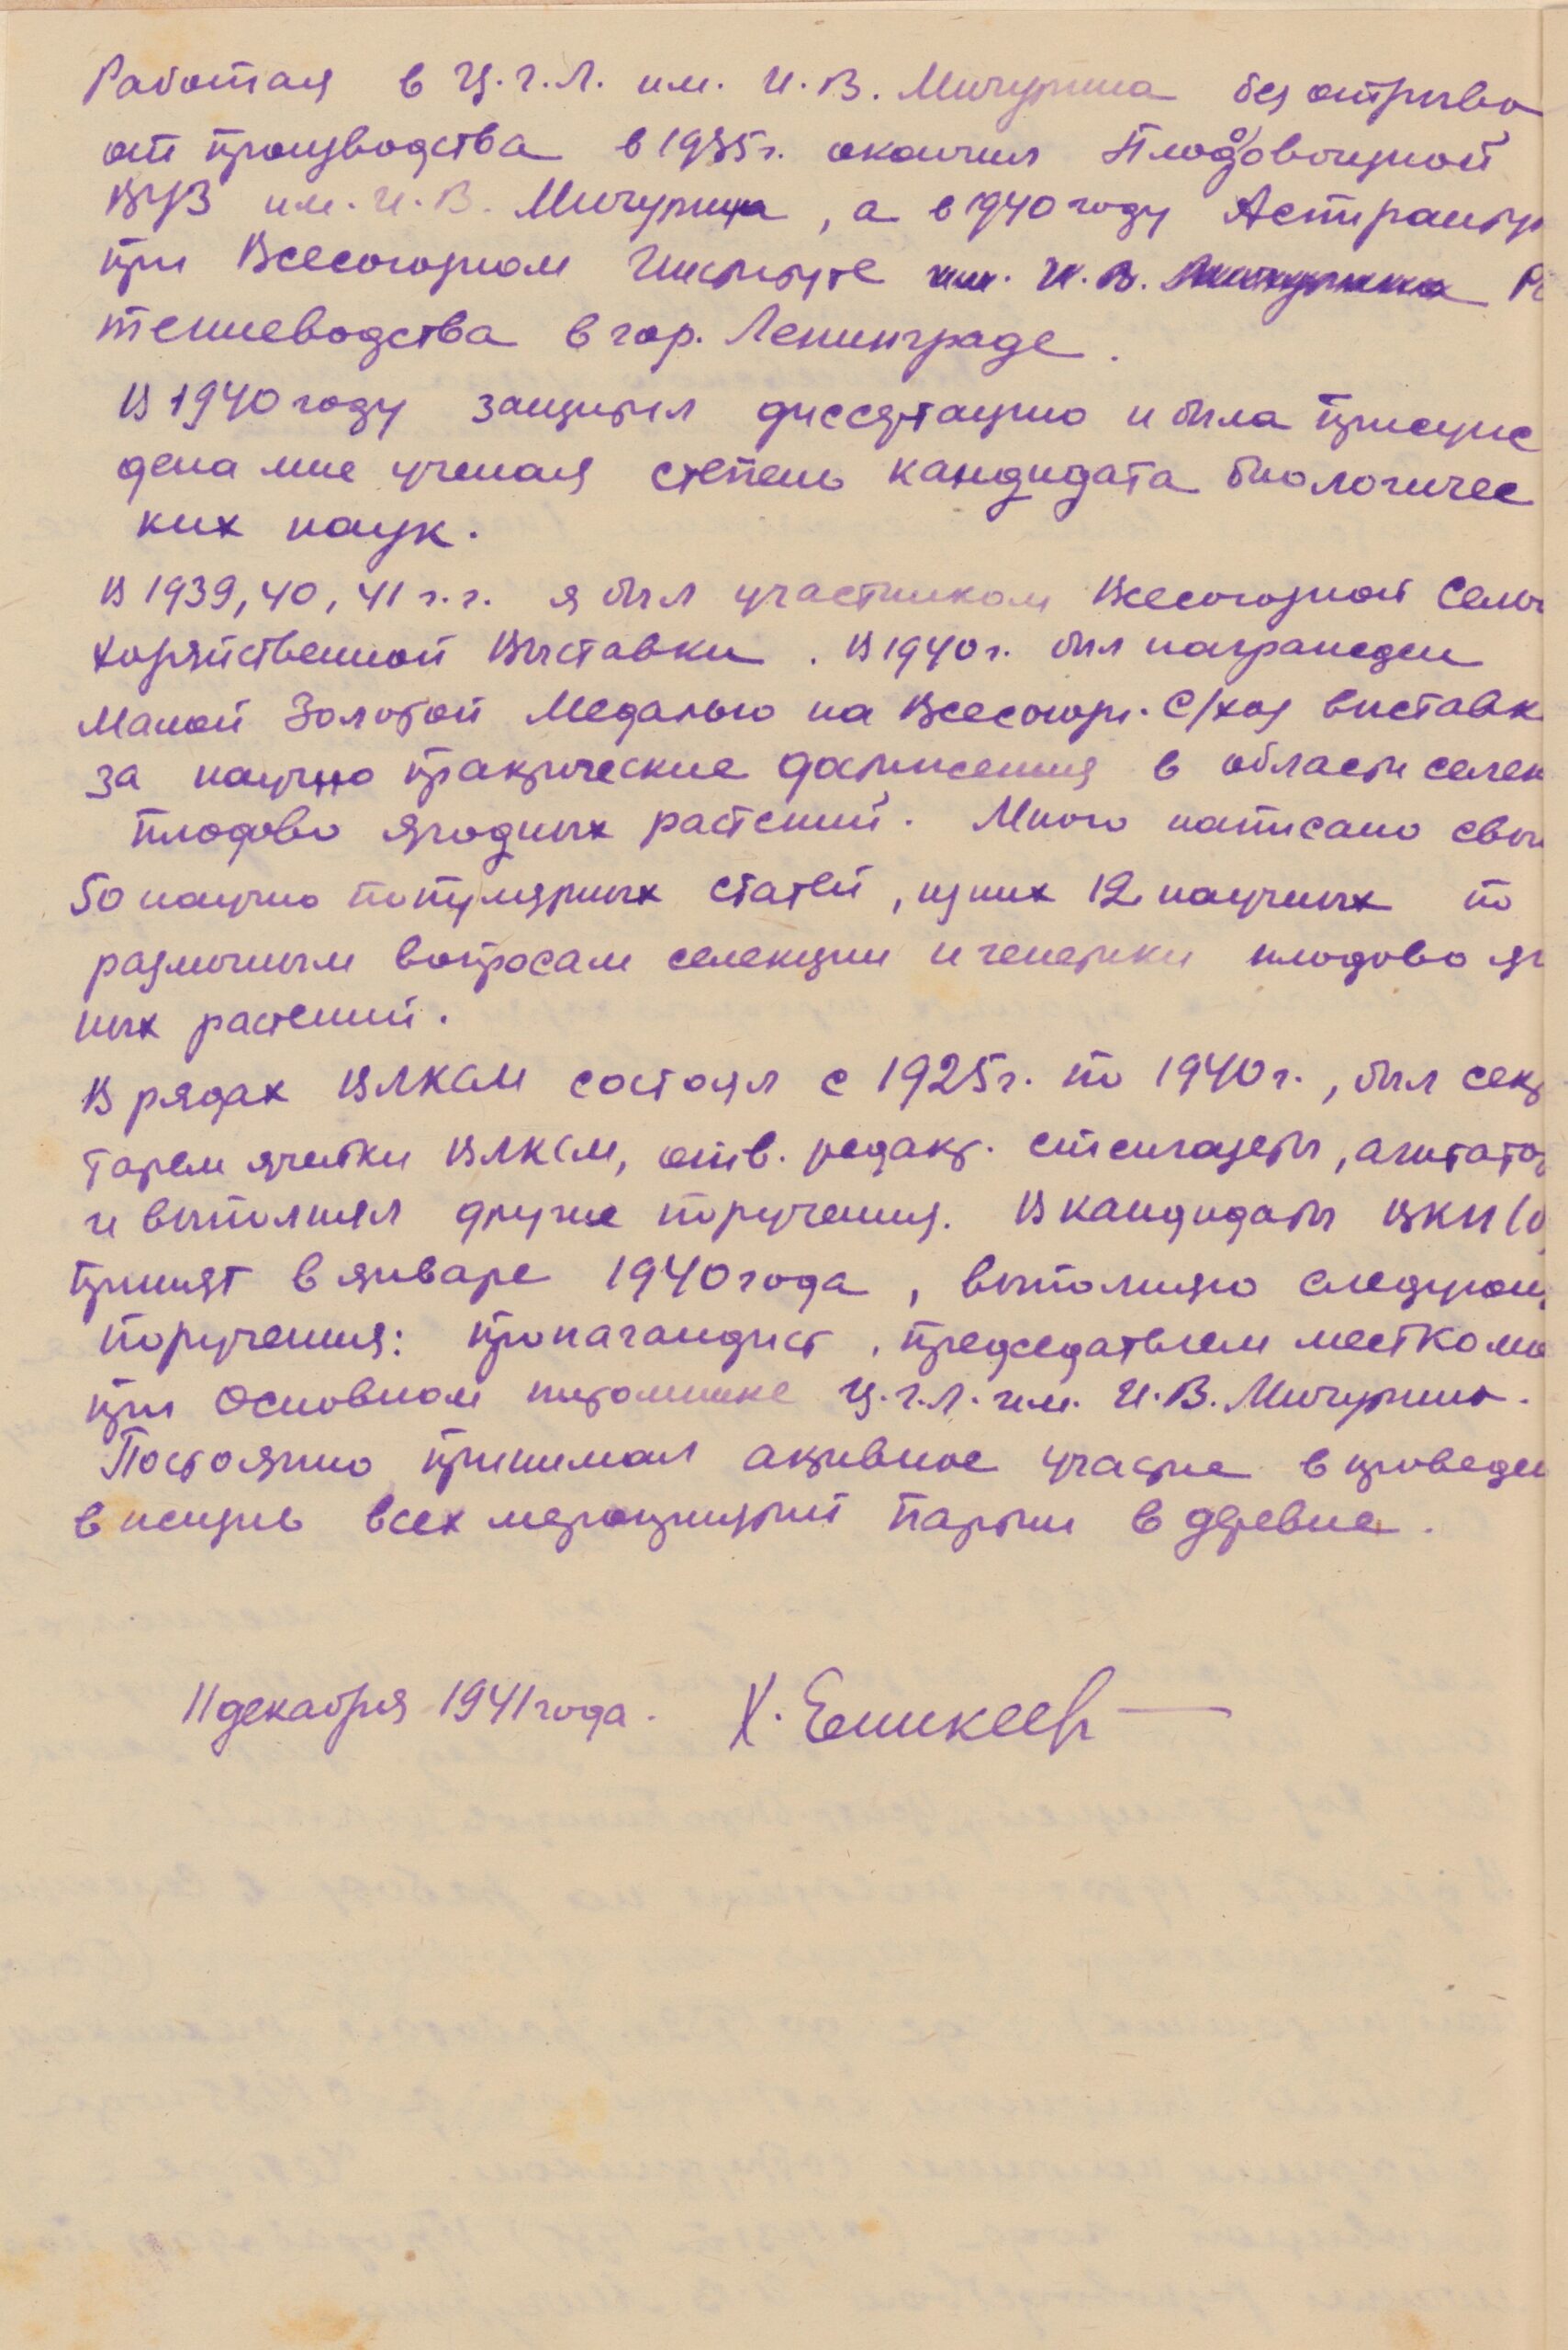 Работая в Ц.Г.Л. им. И.В. Мичурина без отрыва
от производства в 1935г. окончил Плодоовощной
ВУЗ им. И.В. Мичурина, а в 1940 году Аспирантур
при Всесоюзном Институте им. И.В. Мичурина Ра
тениеводства в гор. Ленинграде.
В 1940 году защитил диссертацию и была присуж
дена мне ученая степень кандидата биологичес
ких наук.
В 1939, 40, 41 г.г. я был участником Всесоюзной Сельс
хозяйственной Выставки. В 1940г. был награжден
Малой Золотой Медалью на Всесоюзн. С/хоз выставк
за научно практические достижения в области селек
плодово ягодных растений. Мною написано свы
50 научно популярных статей, из них 12 научных по
различным вопросам селекции и генетики плодово яг
ных растений.
В рядах ВЛКСМ состоял с 1925г. по 1940г., был секр
тарем ячейки ВЛКСМ, отв. редакт. стенгазеты, агитатор
и выполнял другие поручения. В кандидаты ВКП(б)
принят в январе 1940 года, выполняю следующ
поручения: пропагандист, председателем месткома
при Основном питомнике Ц.Г.Л. им. И.В. Мичурина.
Постоянно принимал активное участие в проведен
в жизнь всех мероприятий партии в деревне.
11 декабря 1941 года. Х. Еникеев